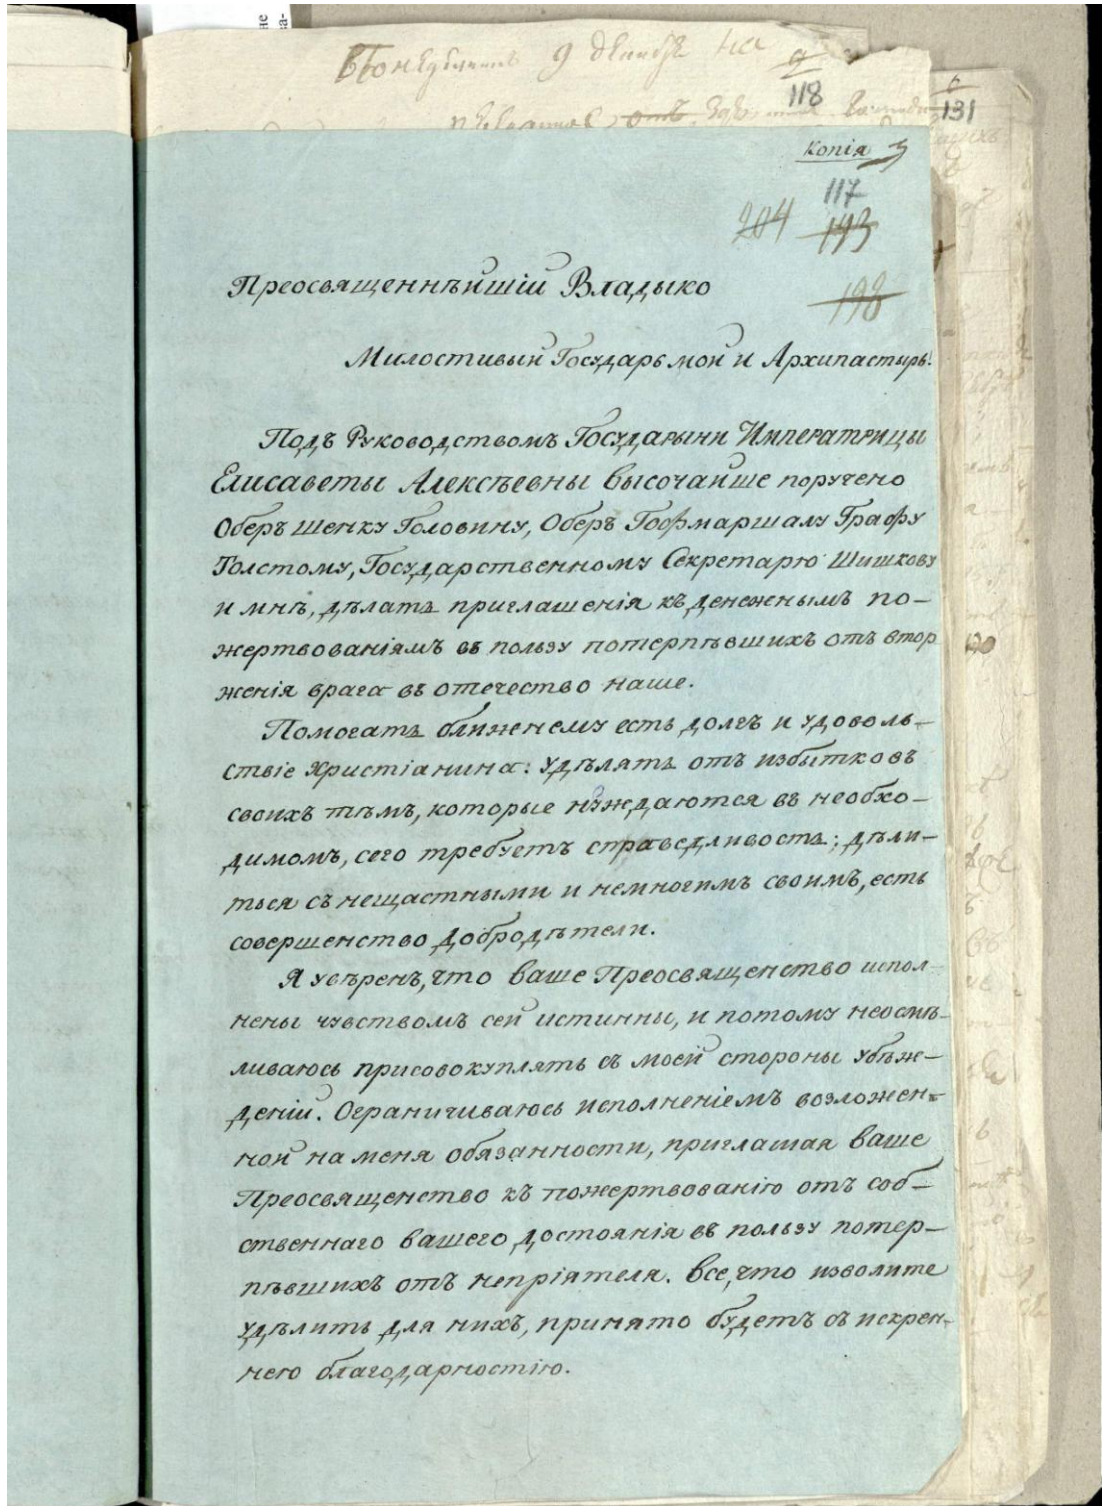 не
ва-
9 декабр на
9
118
6
131
Копія
117
204 193
198
Преосвященнѣйшій Владыко
Милостивый Государь мой и Архипастырь!
Подъ Руководствомъ Государыни Императрицы
Елисаветы Алексѣевны Высочайше поручено
Оберъ Шенку Головину, Оберъ Гофмаршалу Графу
Толстому, Государственному Секретарю Шишкову
и мнѣ, дѣлать приглашенія къ денежнымъ по-
жертвованіямъ въ пользу потерпѣвшихъ отъ втор
женія врага въ отечество наше.
Помогать ближнему есть долгъ и удоволь-
ствіе Христіанина: удѣлять отъ избытковъ
своихъ тѣмъ, которые нуждаются въ необхо-
димомъ, сего требуетъ справедливость; дѣли-
ться съ нещастными и немногимъ своимъ, есть
совершенство добродѣтели.
Я увѣренъ, что ваше Преосвященство испол-
нены чувствомъ сей истинны, и потому неосмѣ-
ливаюсь присовокуплять съ моей стороны убѣж-
деній. Ограничиваюсь исполненіемъ возложен-
ной на меня обязанности, приглашая ваше
Преосвященство къ пожертвованію отъ соб-
ственнаго вашего достоянія въ пользу потер-
пѣвшихъ отъ непріятеля. Все, что изволите
удѣлить для нихъ, принято будетъ съ искрен-
нею благодарностію.